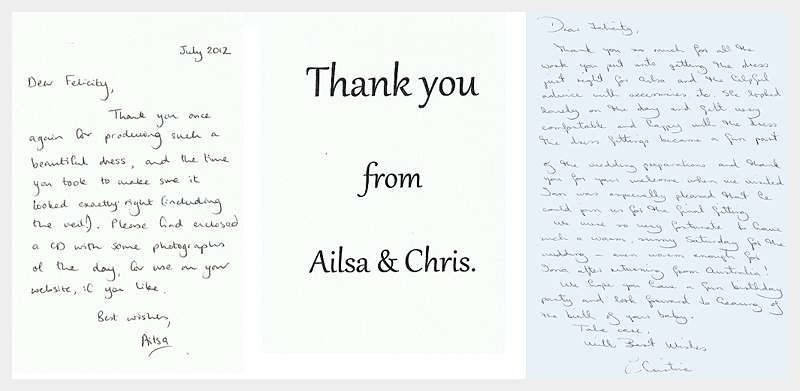 July 2012
Dear Felicity,
Thank you once
again for producing such a
beautiful dress, and the time
you took to make sure it
looked exactly right (including
the veil!). Please find enclosed
a CD with some photographs
of the day, for use on your
website, if you like.
Best wishes,
Ailsa
Thank you
from
Ailsa & Chris.
Dear Felicity,
Thank you so much for all the
work you put into getting the dress
just right for Ailsa and the helpful
advice with accessories etc. She looked
lovely on the day and felt very
comfortable and happy with the dress
The dress fittings became a fun part
of the wedding preparations and thank
you for your welcome when we visited
was especially pleased that he
could join us for the final fitting
We were so very fortunate to have
such a warm, sunny Saturday for the
wedding - even warm enough for
after returning from Australia!
We hope you have a fun birthday
party and look forward to hearing of
the birth of your baby.
Take care.
With Best Wishes
Christine